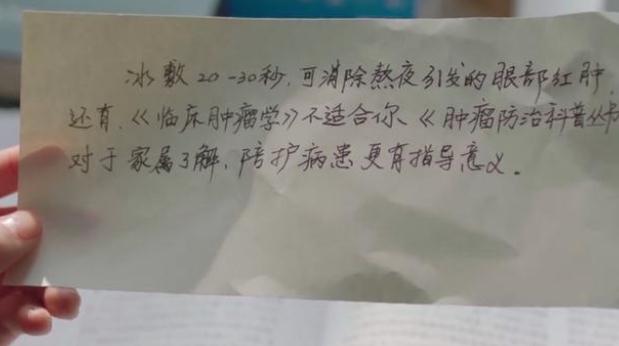 冰敷20-30秒,可消除熬夜引发的眼部红肿
还有,《临床肿瘤学》不适合你、《肿瘤防治科普丛书
对于家属了解、陪护病患更有指导意义。